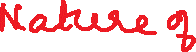 Nature of